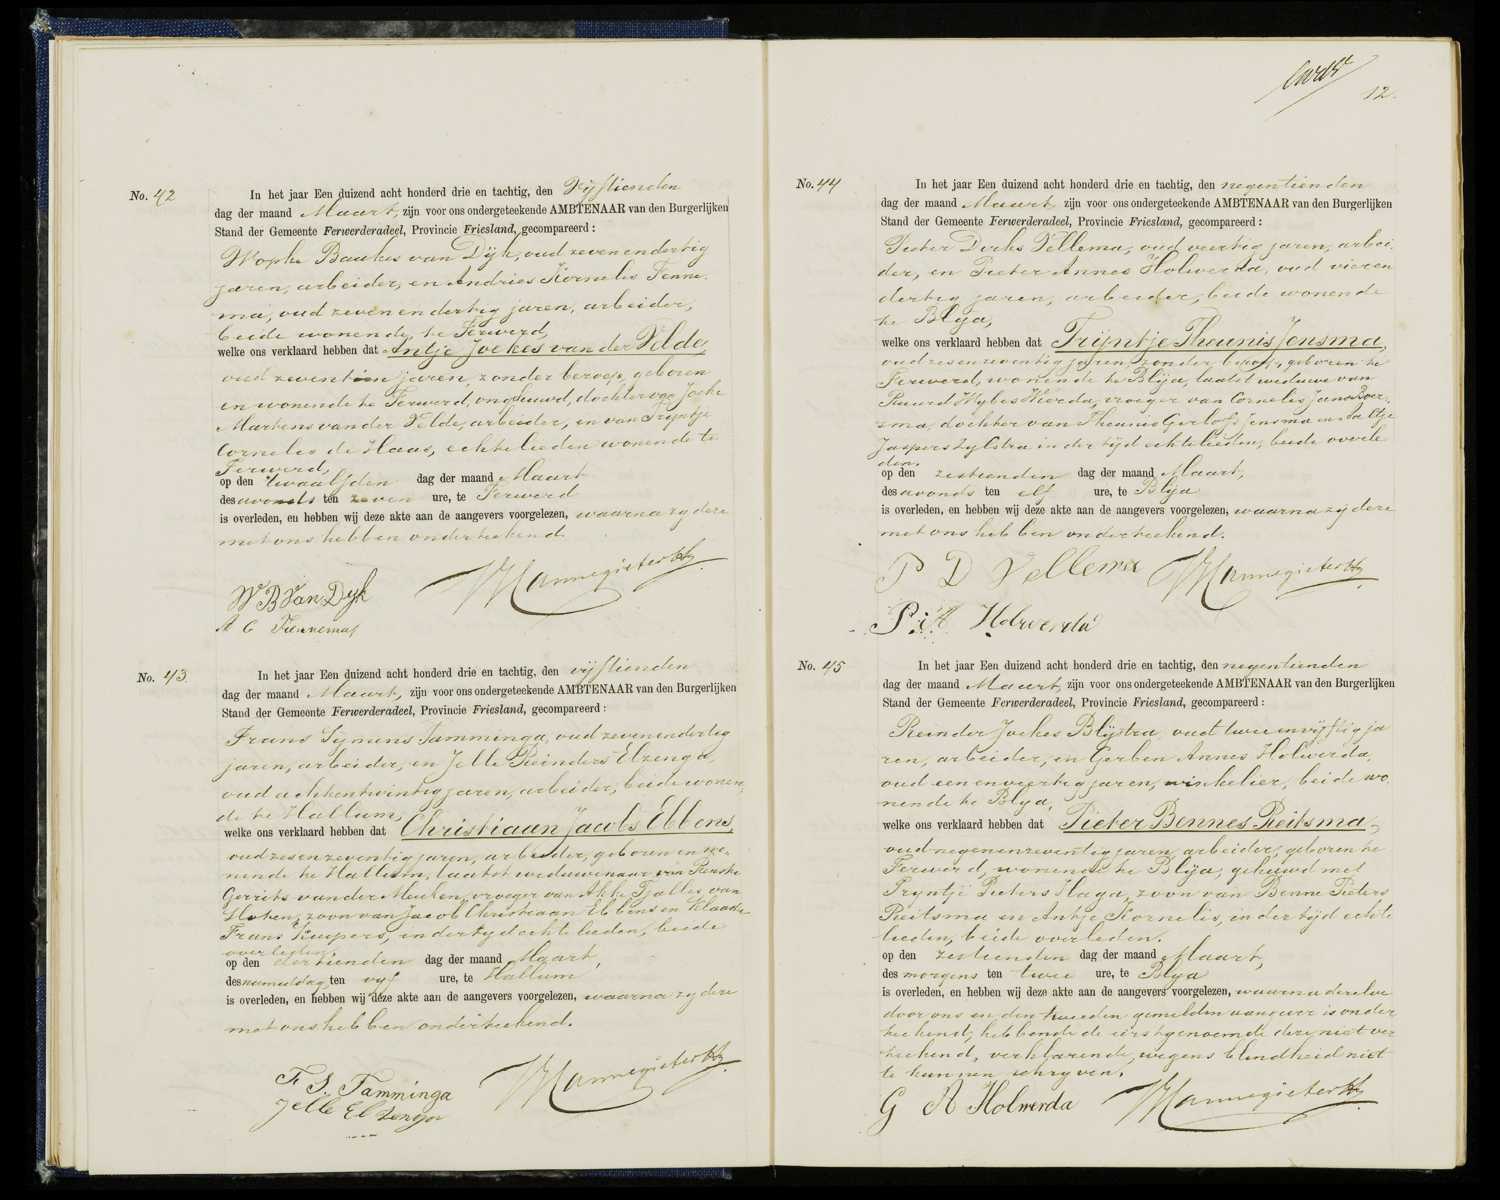 No. 42
In het jaar Een duizend acht honderd drie en tachtig, den Vijftienden
dag der maand Maart, zijn voor ons ondergeteekende AMBTENAAR van den Burgerlijken
Stand der Gemeente Ferwerderadeel, Provincie Friesland, gecompareerd:
Wopke Baukes van Dijk, oud zevenendertig
jaren, arbeider, en Andries Kornelis Fenne-
ma, oud zeven en dertig jaren, arbeider,
beide wonende te Ferwerd,
welke ons verklaard hebben dat Antje Joekes van der Velde,
oud zeventien jaren, zonder beroep, geboren
en wonende te Ferwerd, ongehuwd, dochter van Joeke
Martens van der Velde, arbeider, en van Trijntje
Cornelis de Haas, echtelieden wonende te
Ferwerd,
op den twaalfden dag der maand Maart
des avonds ten zeven ure, te Ferwerd
is overleden, en hebben wij deze akte aan de aangevers voorgelezen, waarna zij deze
met ons hebben onderteekend.
W B Van Dijk
A C Fennema
No. 43
In het jaar Een duizend acht honderd drie en tachtig, den vijftienden
dag der maand Maart, zijn voor ons ondergeteekende AMBTENAAR van den Burgerlijken
Stand der Gemeente Ferwerderadeel, Provincie Friesland, gecompareerd:
Frans Sijmens Tamminga, oud zevenendertig
jaren, arbeider, en Jelle Reinders Elzenga,
oud achtentwintig jaren, arbeider, beide wonen,
de te Hallum,
welke ons verklaard hebben dat Christiaan Jacobs Ebbens,
oud zesenzeventig jaren, arbeider, geboren en wo-
nende te Hallum, laatst weduwenaar van Renske
Gerrits van der Meulen, vroeger van Akke Tjalles van
zoon van Jacob Christiaan Ebbens en Klaaske
Frans Kuipers, in der tijd echtelieden, beide
overleden,
op den dertienden dag der maand Maart,
des namiddag ten vijf ure, te Hallum
is overleden, en hebben wij deze akte aan de aangevers voorgelezen, waarna zij deze
met ons hebben onderteekend.
F. S. Tamminga
Jelle Elzenga
12.
No. 44
In het jaar Een duizend acht honderd drie en tachtig, den negentienden
dag der maand Maart, zijn voor ons ondergeteekende AMBTENAAR van den Burgerlijken
Stand der Gemeente Ferwerderadeel, Provincie Friesland, gecompareerd:
Pieter Dirks Vellema, oud veertig jaren, arbei-
der, en Pieter Annes Holwerda, oud vieren
dertig jaren, arbeider, beide wonende
te Blija,
welke ons verklaard hebben dat Trijntje Theunis Jensma,
oud zesenzeventig jaren, zonder beroep, geboren te
Ferwerd, wonende te Blija, laatst weduwe van
Ruurd Wybes Wierda, vroeger van Cornelis Jans Boer-
sma, dochter van Theunis Gerlofs Jensma en van Eltje
Jaspers Zylstra in der tijd echtelieden, beide overle
den,
op den zestienden dag der maand Maart,
des avonds ten elf ure, te Blija
is overleden, en hebben wij deze akte aan de aangevers voorgelezen, waarna zij deze
met ons hebben onderteekend.
P D Vellema
P. A Holwerda
No. 45
In het jaar Een duizend acht honderd drie en tachtig, den negentienden
dag der maand Maart, zijn voor ons ondergeteekende AMBTENAAR van den Burgerlijken
Stand der Gemeente Ferwerderadeel, Provincie Friesland, gecompareerd:
Reinder Joekes Blijstra, oud tweeenvijftig ja
ren, arbeider, en Gerben Annes Holwerda,
oud een en veertig jaren, winkelier, beide wo-
nende te Blija,
welke ons verklaard hebben dat Pieter Bennes Reitsma,
oud negenenzeventig jaren, arbeider, geboren te
Ferwerd, wonende te Blija, gehuwd met
Trijntje Pieters Haga, zoon van Benne Pieters
Reitsma en Antje Kornelis, in der tijd echte
lieden, beide overleden,
op den zestienden dag der maand Maart,
des morgens ten twee ure, te Blija
is overleden, en hebben wij deze akte aan de aangevers voorgelezen, waarna dezelve
door ons en den tweeden gemelden aangever is onder
teekend, hebbende de eerstgenoemde deze niet ver
teekend, verklarende, wegens blindheid niet
te kunnen schrijven.
G A Holwerda